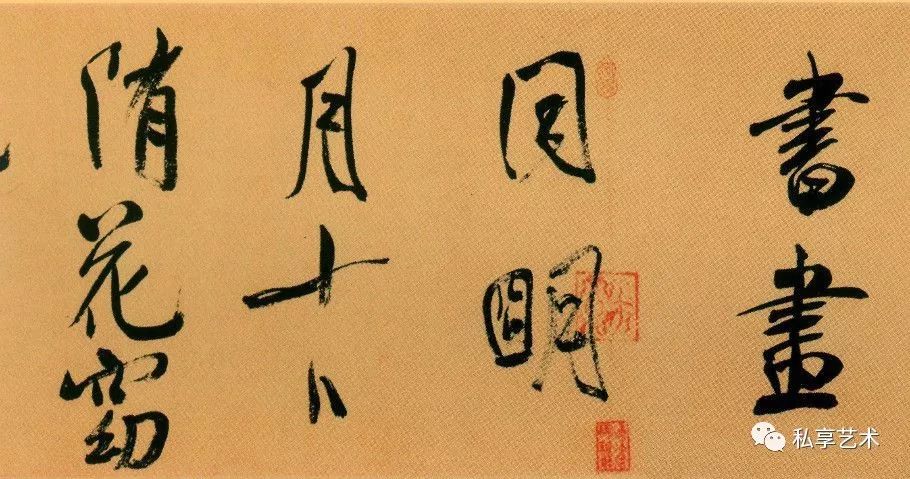 書畫
同明
月十日
隋花窈
私享艺术